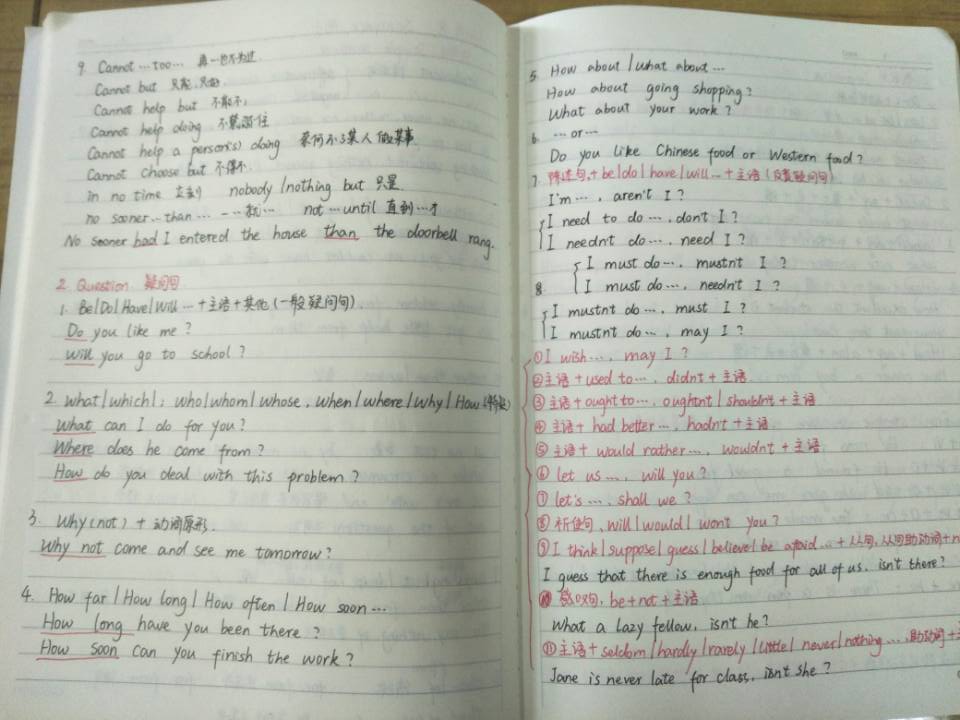 9. Cannot … too … 再…也不为过
Cannot but 只能,只好
Cannot help but 不能不
Cannot help doing 不禁 忍住
Cannot help a person(s) doing 奈何不了某人做某事
Cannot choose but 不得不
in no time 立刻 nobody / nothing but 只是
no sooner … than … 一…就… not … until 直到…才
No sooner had I entered the house than the doorbell rang.
2. Question 疑问句
1. Be/Do/Have/Will … + 主语 + 其他 (一般疑问句)
Do you like me ?
Will you go to school ?
2. what / which / ; who / whom / whose , when / where / why / How (特殊)
What can I do for you?
Where does he come from?
How do you deal with this problem?
3. Why (not) + 动词原形.
Why not come and see me tomorrow?
4. How far / How long / How often / How soon …
How long have you been there ?
How soon can you finish the work?
5. How about / what about …
How about going shopping?
What about your work?
6. … or …
Do you like Chinese food or Western food?
7. 陈述句, + be/do/have/will … + 主语 (反意疑问句)
I'm … , aren't I ?
I need to do … , don't I ?
I needn't do … , need I ?
I must do … , mustn't I ?
8. I must do … , needn't I ?
I mustn't do … , must I ?
I mustn't do … , may I ?
① I wish … , may I ?
② 主语 + used to … , didn't + 主语
③ 主语 + ought to … , oughtn't / shouldn't + 主语
④ 主语 + had better … , hadn't + 主语
⑤ 主语 + would rather … , wouldn't + 主语
⑥ let us … , will you ?
⑦ let's … , shall we ?
⑧ 祈使句, will / would / won't you ?
⑨ I think / suppose / guess / believe / be afraid … + 从句, 从句助动词 + n
I guess that there is enough food for all of us, isn't there?
⑩ 感叹句, be + not + 主语
What a lazy fellow, isn't he?
⑪ 主语 + seldom / hardly / rarely / little / never / nothing … , 助动词 + 主
Jane is never late for class, isn't she ?